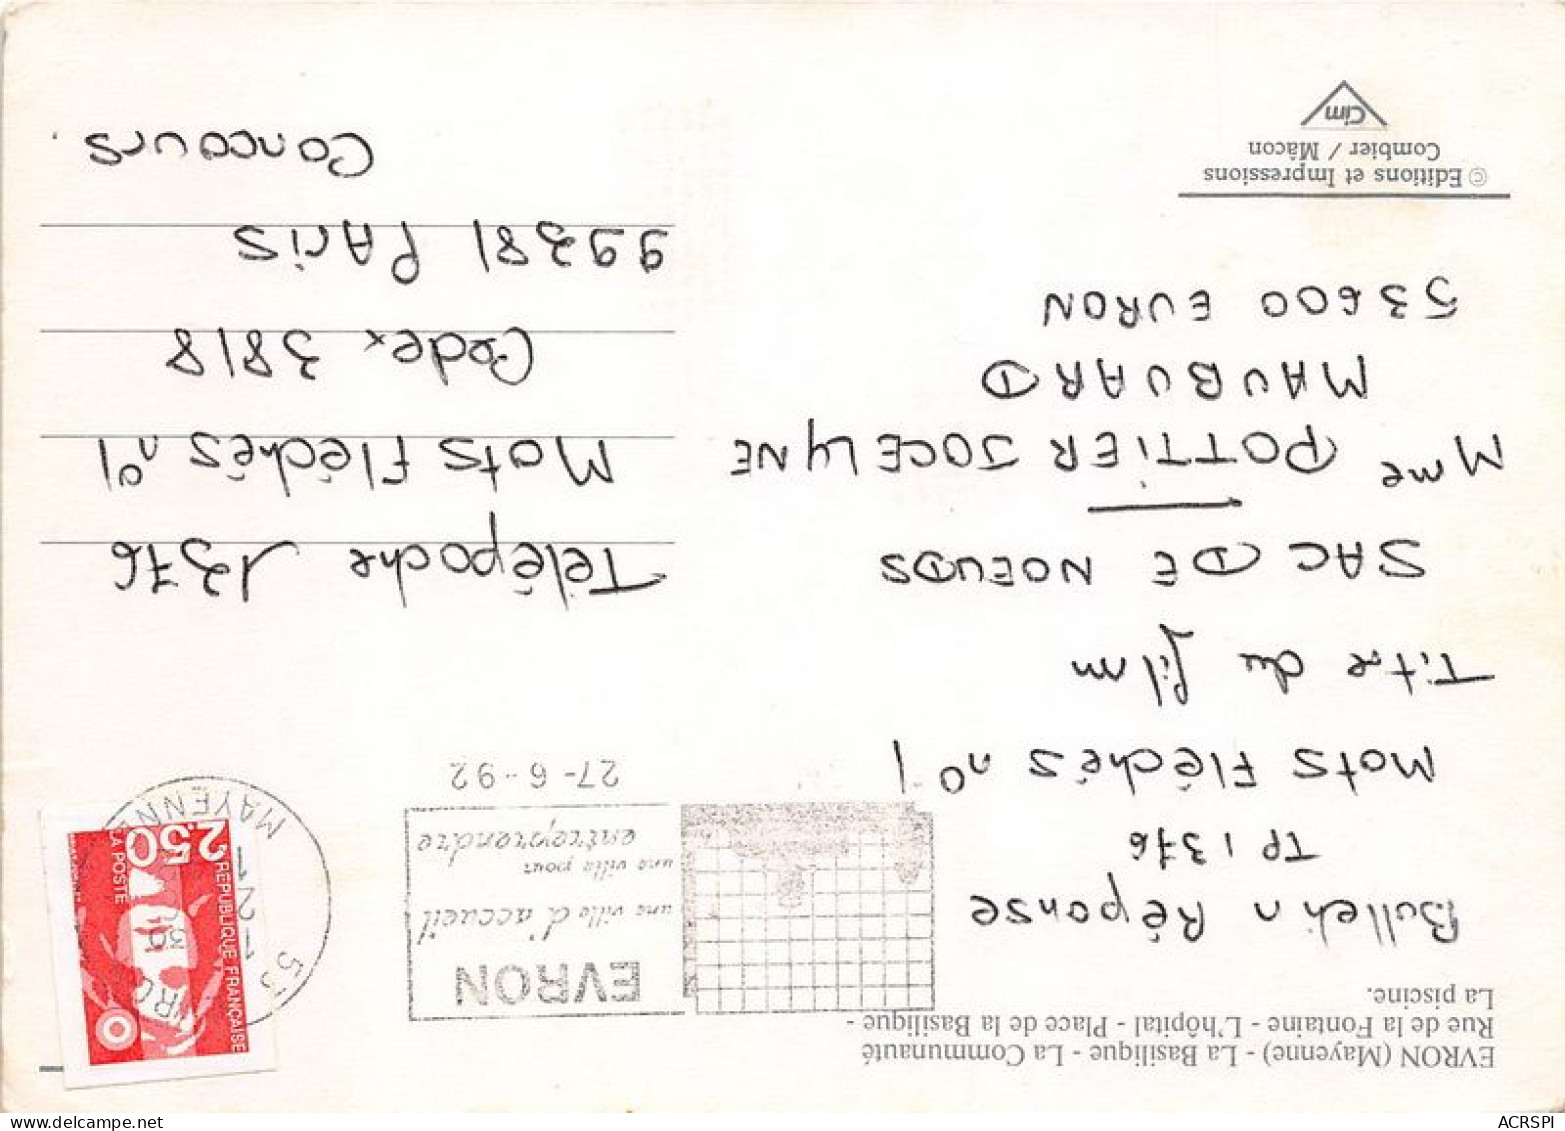 EVRON (Mayenne) - La Basilique - La Communauté
Rue de la Fontaine - L'hôpital - Place de la Basilique -
La piscine.
Bulletin Réponse
TP 1376
Mots Fléchés n°1
Titre du film
SAC DE NOEUDS
Mme POTTIER JOCELYNE
MAUBUARD
53600 EVRON
© Editions et Impressions
Combier / Mâcon
Cim
EVRON
une ville d'accueil
une ville pour
entreprendre
27-6-92
53
MAYENNE
RÉPUBLIQUE FRANÇAISE
2.50
LA POSTE
Télépoche 1376
Mots Fléchés n°1
Cedex 3818
99381 PARIS
Concours.
ACRSPI